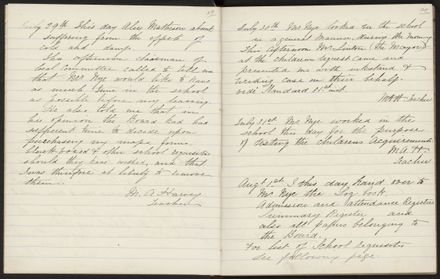 July 29th This day Alice Mathison absent
suffering from the effects of
cold and damp.
This afternoon chairman of
local committee called & told me
that Mr Nye would like to have
as much time in the school
as possible before my leaving.
He also told me that in
his opinion the Board had had
sufficient time to decide upon
purchasing my maps, forms,
blackboard & other school requisites
should they have wished, and that
I was therefore at liberty to remove
them.
M. A. Harvey
Teacher
July 30th Mr Nye worked in the school
in a general manner during the morning
This afternoon Mr Linton (the Mayor)
at the childrens request came and
presented me with
case on their behalf.
vide Standard 31st ult.
Teacher
July 31st Mr Nye worked in the
school this day for the purpose
of testing the childrens acquirements.
Teacher
Augt 1st I this day hand over to
Mr Nye the Log book,
Admission and Attendance Registers
Summary Register and
also all papers belonging to
the Board.
For list of School requisites
see following page.